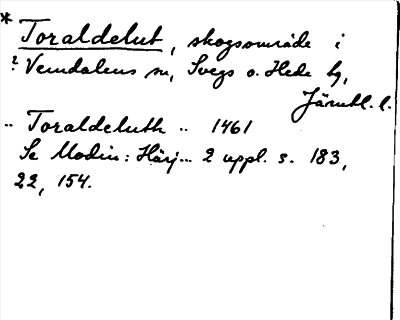 * Toraldelut, skogsområde i
? Vemdalens sn, Svegs o. Hede tg,
Jämtl. l.
.. Toraldeluth .. 1461
Se Modin: Härj... 2 uppl. s. 183,
22, 154.